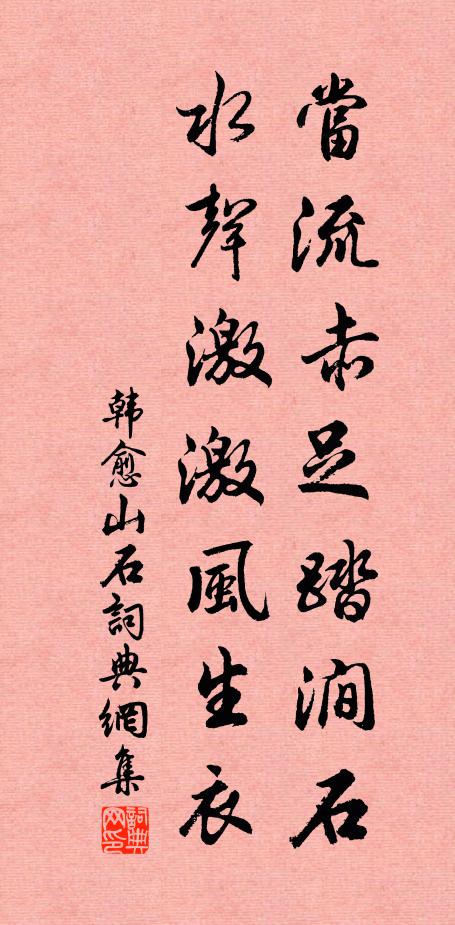 當流赤足踏澗石
水聲激激風生衣
韩愈山石詞典網集
詞典网印